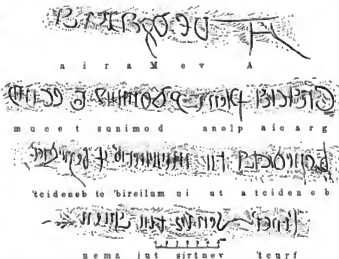 airaM ev A
mucet sunimod anelp aicarg
'tcideneb te 'bireilum ni ut atcideneb
nema iut sirtnev 'tcurf